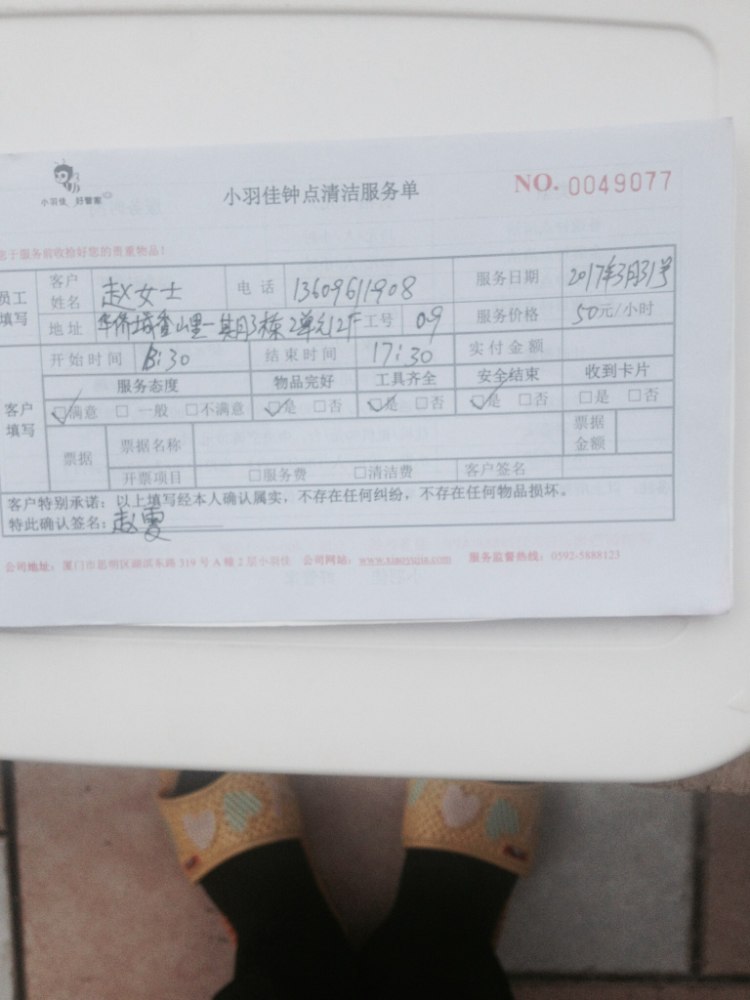 小羽佳 好管家
小羽佳钟点清洁服务单
NO. 0049077
于服务前收拾好您的贵重物品!
员工填写
客户姓名 赵女士 电话 13609611908 服务日期 2017年3月31号
地址 华侨城香山里一期3栋2单元12F 工号 09 服务价格 50元/小时
开始时间 :30 结束时间 17:30 实付金额
客户填写
服务态度 物品完好 工具齐全 安全结束 收到卡片
☑满意 □ 一般 □不满意 ☑是 □否 ☑是 □否 ☑是 □否 □是 □否
票据 票据名称 票据金额
开票项目 □服务费 □清洁费 客户签名
客户特别承诺:以上填写经本人确认属实,不存在任何纠纷,不存在任何物品损坏。
特此确认签名:赵雯
公司地址:厦门市思明区湖滨东路 319 号 A 幢 2 层小羽佳 公司网站: 服务监督热线:0592-5888123